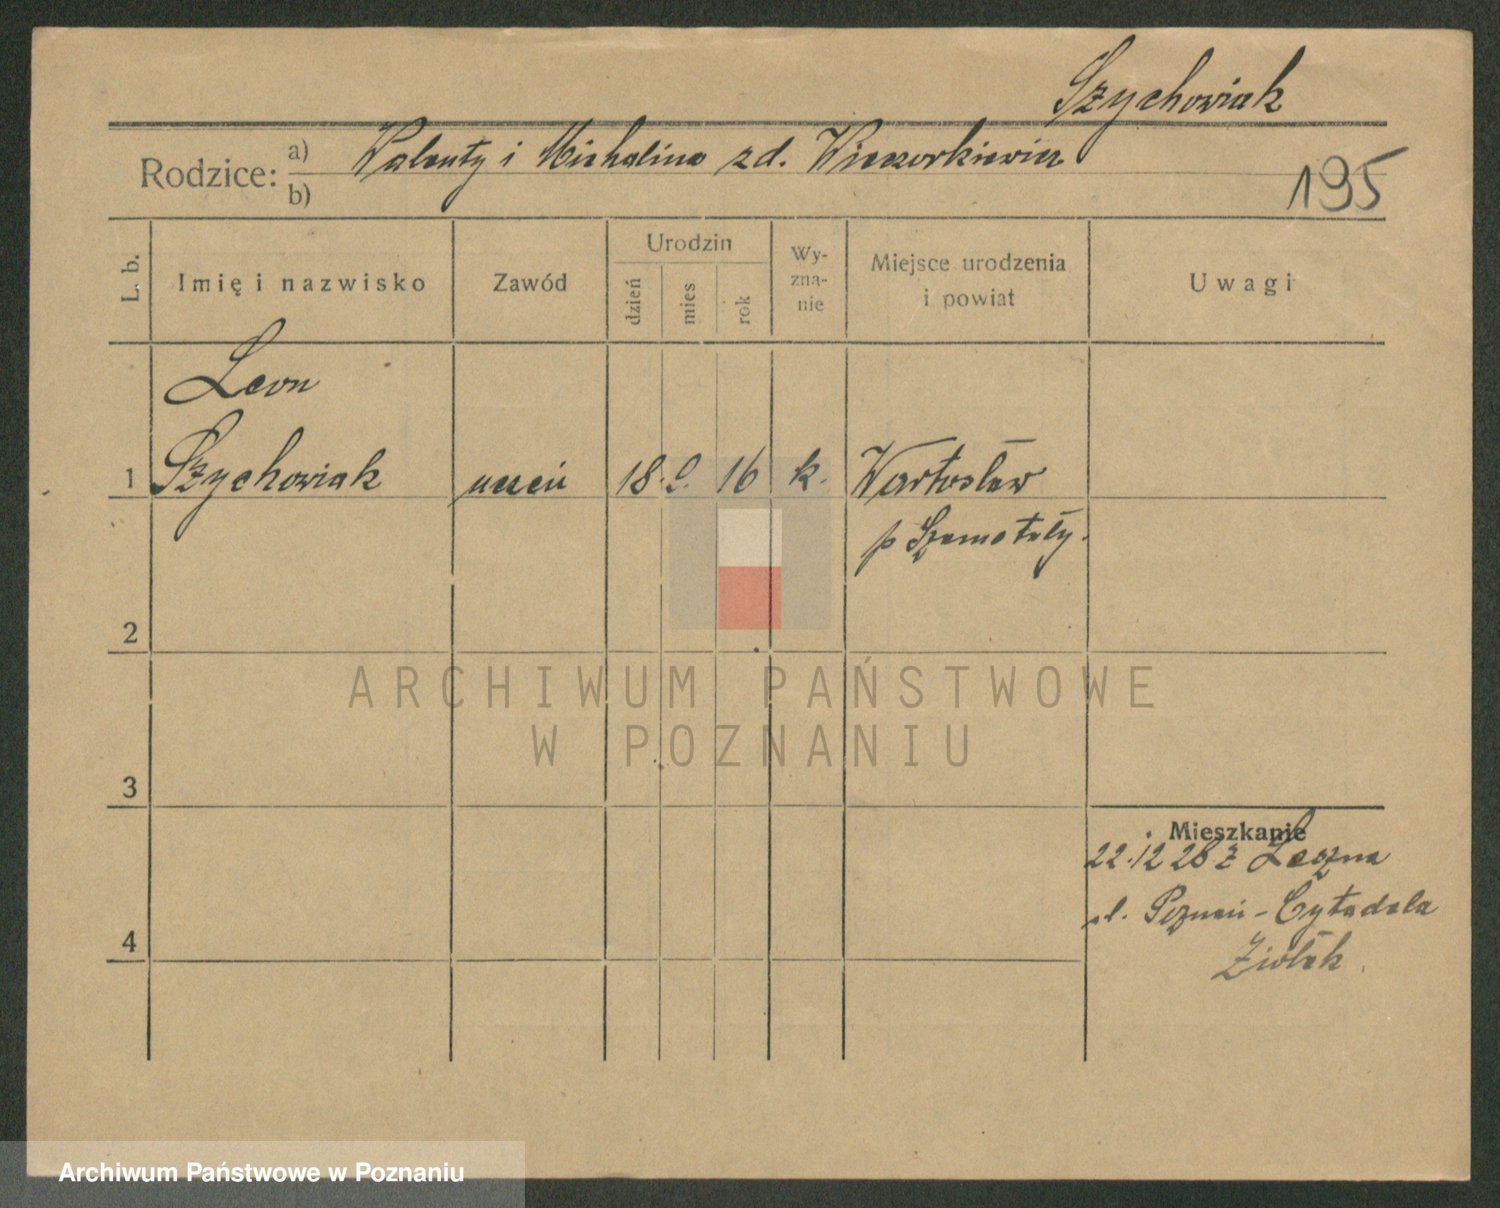 Szychowiak
Rodzice: a) Walenty i Michalina zd. Wieczorkiewicz
b)
195
L. b.
Imię i nazwisko
Zawód
Urodzin
dzień
mies
rok
Wy-
zna-
nie
Miejsce urodzenia
i powiat
Uwagi
Leon
1 Szychowiak uczeń 18. 2. 16 k. Wartosław
p Szamotuły.
2
ARCHIWUM PAŃSTWOWE
W POZNANIU
3
Mieszkanie
22.12 28 z Leszna
Poznań - Cytadela
4
Archiwum Państwowe w Poznaniu